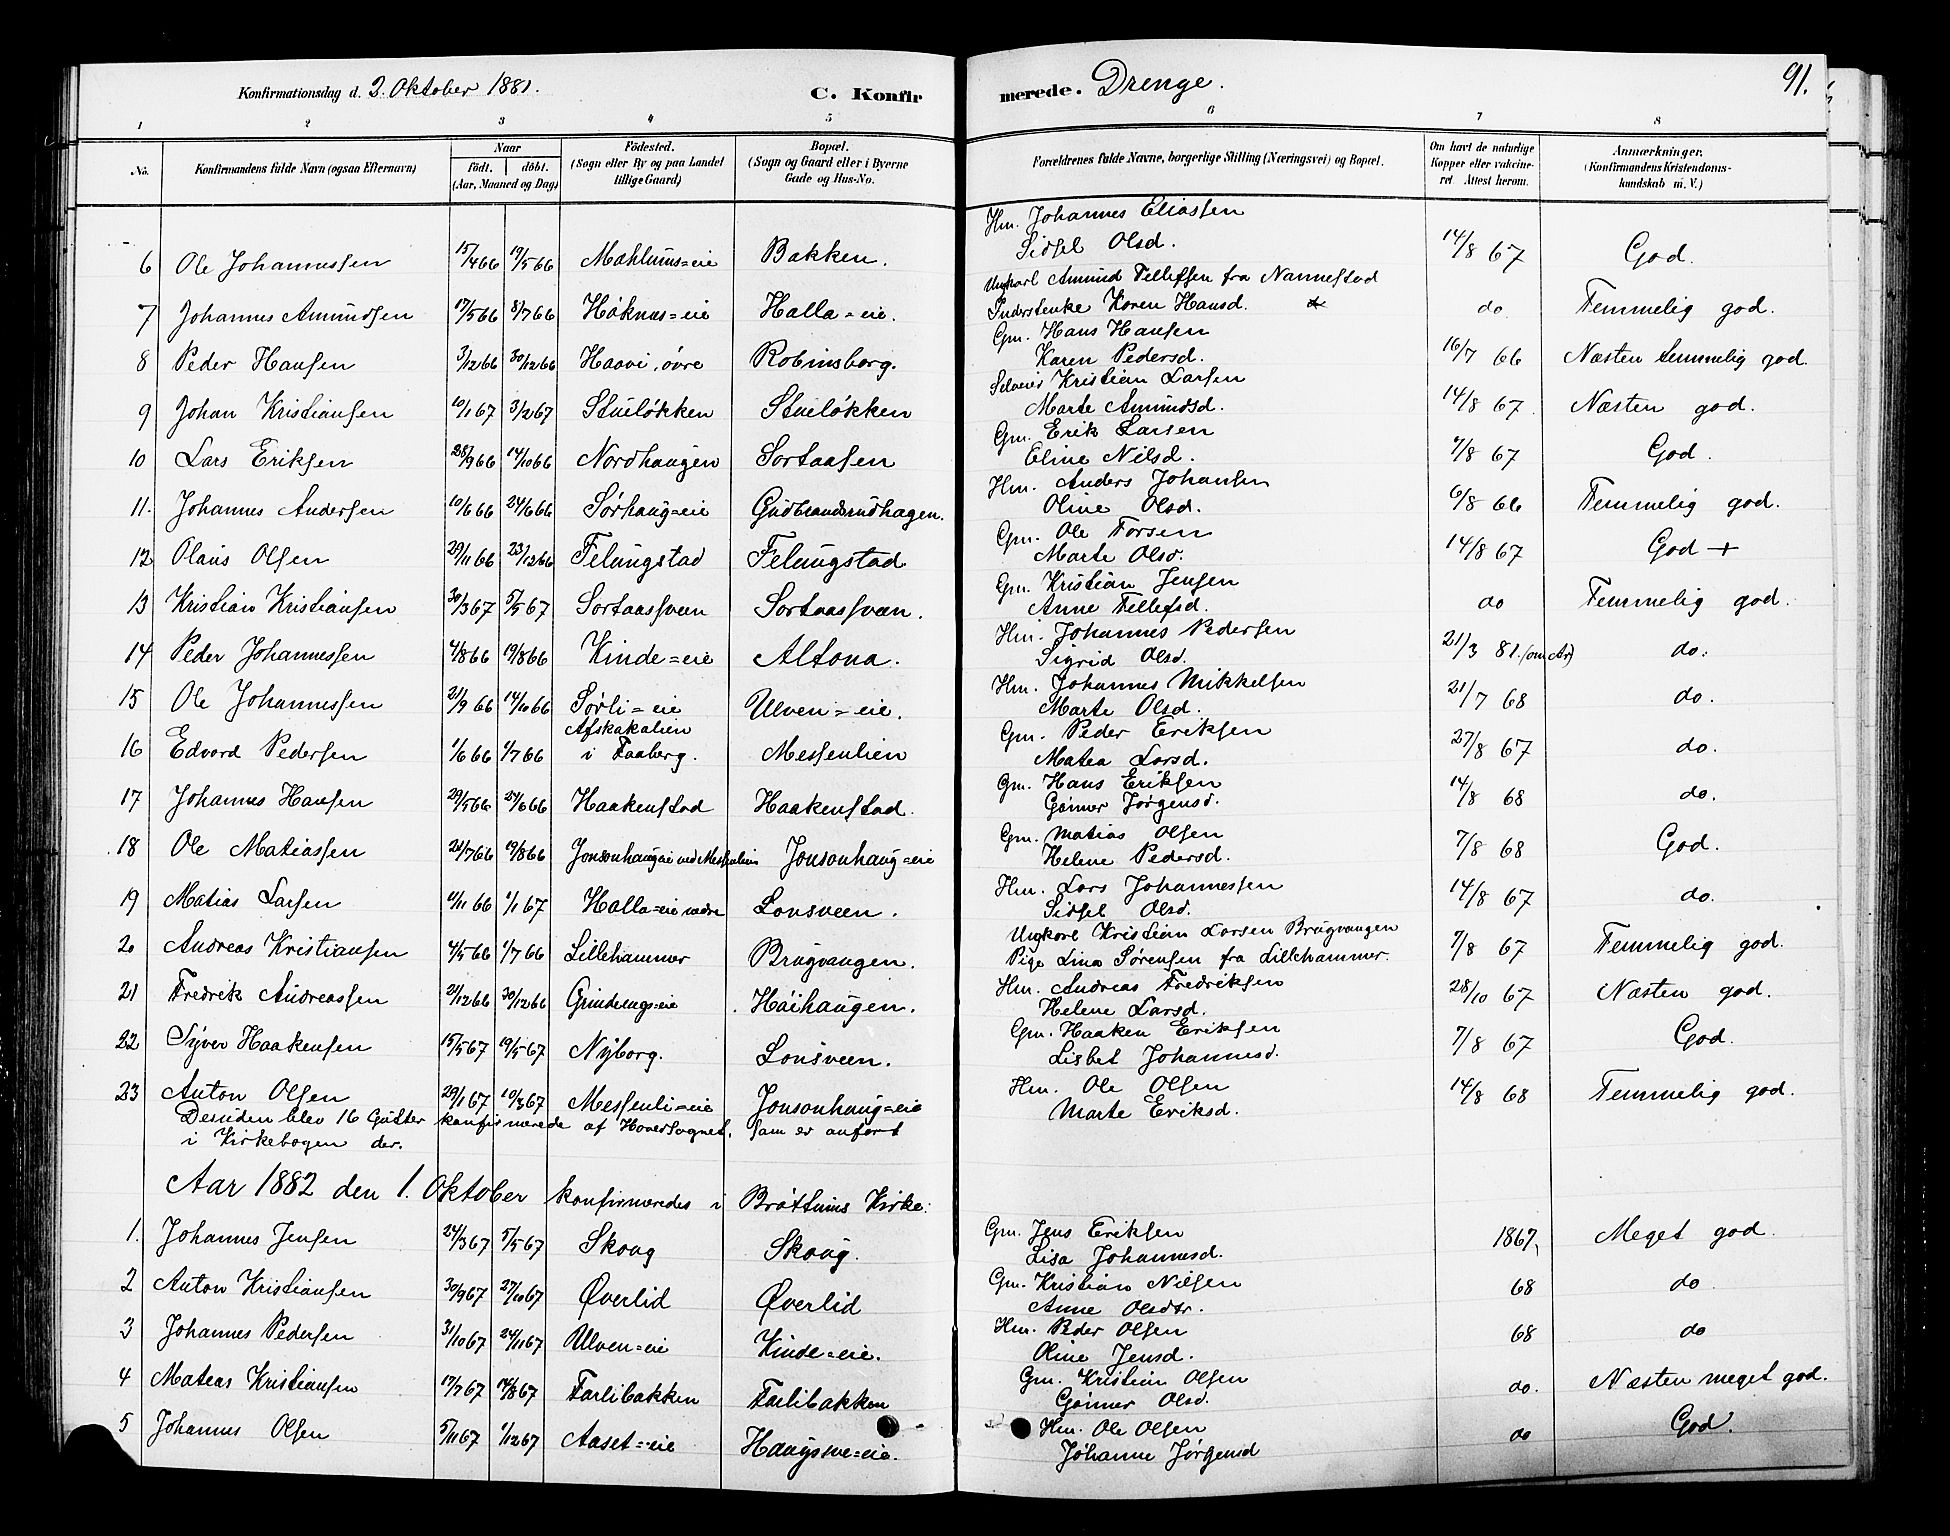 Konfirmationsdag d. 2. Oktober 1881. C. Konfirmerede. Drenge. 91.
1 2 3 4 5 6 7 8
No. Konfirmandens fulde Navn (ogsaa Efternavn) Naar født. døbt. (Aar, Maaned og Dag) Fødested. (Sogn eller By og paa Landet tillige Gaard) Bopæl. (Sogn og Gaard eller i Byerne Gade og Hus-No. Forældrenes fulde Navne, borgerlige Stilling (Næringsvei) og Bopæl. Om havt de naturlige Kopper eller vaccineret Attest herom. Anmærkninger, (Konfirmandens Kristendomskundskab m. V.)
6 Ole Johannessen 15/4 66 19/5 66 Mæhlums=eie Bakken. Hm. Johannes Eliassen Sidsel Olsd. 14/8 67 God.
7 Johannes Amundsen 17/5 66 8/7 66 Høknes=eie Halla=eie. Ungkarl Amund Tellefsen fra Nannestad Inderstenke Karen Hansd. do Temmelig god.
8 Peder Hansen 3/12 66 30/12 66 Haavi, øvre Robinsborg. Gm. Hans Hansen Karen Pedersd. 16/7 66 Næsten temmelig god.
9 Johan Kristiansen 10/1 67 3/2 67 Stueløkken Stueløkken Selveier Kristian Larsen Marte Amundsd. 14/8 67. Næsten god.
10 Lars Eriksen 28/9 66 14/10 66 Nordhaugen Sortaasen Gm. Erik Larsen Eline Nilsd. 7/8 67 God.
11. Johannes Andersen 10/6 66 24/6 66 Sørhaug=eie Gudbrandsrudhagen. Hm. Anders Johansen Oline Olsd. 6/8 66 Temmelig god.
12 Olaus Olsen 29/11 66 23/12 66 Felungstad Felungstad Gm. Ole Torsen Marte Olsd. 14/8 67 God +
13 Kristian Kristiansen 30/3 67 5/5 67 Sortaassveen Sortaassveen. Gm. Kristian Jensen Anne Tellefsd. do Temmelig god.
14 Peder Johannessen 4/8 66 19/8 66 Kinde=eie Altona. Hm. Johannes Pedersen Sigrid Olsd. 21/3 81. do.
15 Ole Johannessen 21/9 66 14/10 66 Sørli=eie Ulven=eie. Hm. Johannes Mikkelsen Marte Olsd. 21/7 68 do.
16 Edvard Pedersen 1/6 66 1/7 66 Afskakalien i Faaberg. Messenlien Gm. Peder Eriksen Matea Larsd. 27/8 67 do.
17 Johannes Hansen 29/5 66 24/6 66 Haakenstad Haakenstad. Gm. Hans Eriksen Gønner Jørgensd. 14/8 68 do.
18 Ole Matiassen 24/7 66 19/8 66 Jonsonhaugeie ved Messenlien Jonsonhaug=eie Gm. Matias Olsen Helene Pedersd. 7/8 68 God.
19 Matias Larsen 11/11 66 1/1 67 Halla=eie nedre Lonsveen. Hm. Lars Johannessen Sidsel Olsd. 14/8 67 do.
20 Andreas Kristiansen 4/5 66 1/7 66 Lillehammer Brugvangen. Ungkarl Kristian Larsen Brugvangen Pige Lina Sørensen fra Lillehammer. 7/8 67 Temmelig god.
21 Fredrik Andreassen 21/12 66 30/12 66 Grindengs=eie Høihaugen. Hm. Andreas Fredriksen Helene Larsd. 28/10 67 Næsten god.
22 Syver Haakensen 15/5 67 19/5 67 Nyborg. Lonsveen. Gm. Haaken Eriksen Lisbet Johannesd. 7/8 67 God.
23 Anton Olsen 29/1 67 10/3 67 Messenli=eie Jonsonhaug=eie Hm. Ole Olsen Marte Eriksd. 14/8 68 Temmelig god.
Desuden blev 16 Gutter konfirmerede af Hovedsognet, som er anført
i Kirkebogen der.
Aar 1882 den 1. Oktober konfirmeredes i Brøttums Kirke:
1. Johannes Jensen 24/3 67 5/5 67 Skoug Skoug. Gm. Jens Eriksen Lisa Johannesd. 1867, Meget god.
2 Anton Kristiansen 30/9 67 27/10 67 Øverlid Øverlid Gm. Kristian Nilsen Anne Olsdtr. 68 do
3 Johannes Pedersen 31/10 67 24/11 67 Ulven=eie Kinde=eie. Hm. Peder Olsen Oline Jensd. 68 do
4 Mateas Kristiansen 17/7 67 14/8 67 Farlibakken Farlibakken Gm. Kristian Olsen Gønner Olsd. do. Næsten meget god.
5 Johannes Olsen 5/11 67 1/12 67 Aaset=eie Haugsve=eie. Hm. Ole Olsen Johanne Jørgensd do God.